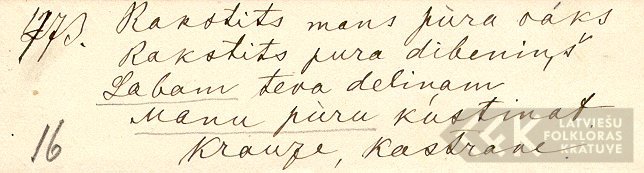 1773. Rakstits mans pùra vâks
Rakstits pura dibeniņš
Labam teva delinam
Manu pùru kustinat
16 Krauze, Kastrane.
LATVIEŠU
FOLKLORAS
KRĀTUVE